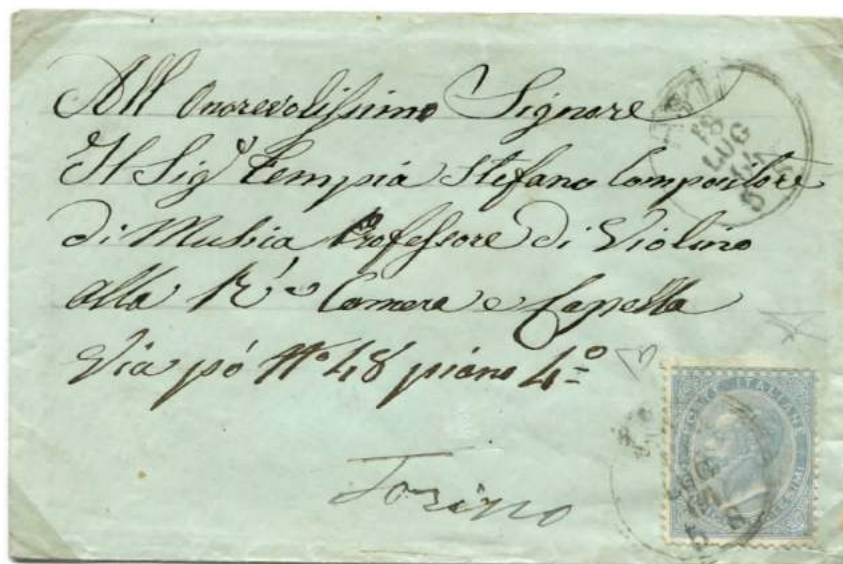 All Onorevolissimo Signore
Il Sigʳ Tempia Stefano Compositore
di Musica Professore di Violino
alla Rᵃ Camera e Capella
Via pó Nº 48 piano 4º
Torino
18
LUG
64
5
POSTE ITALIANE